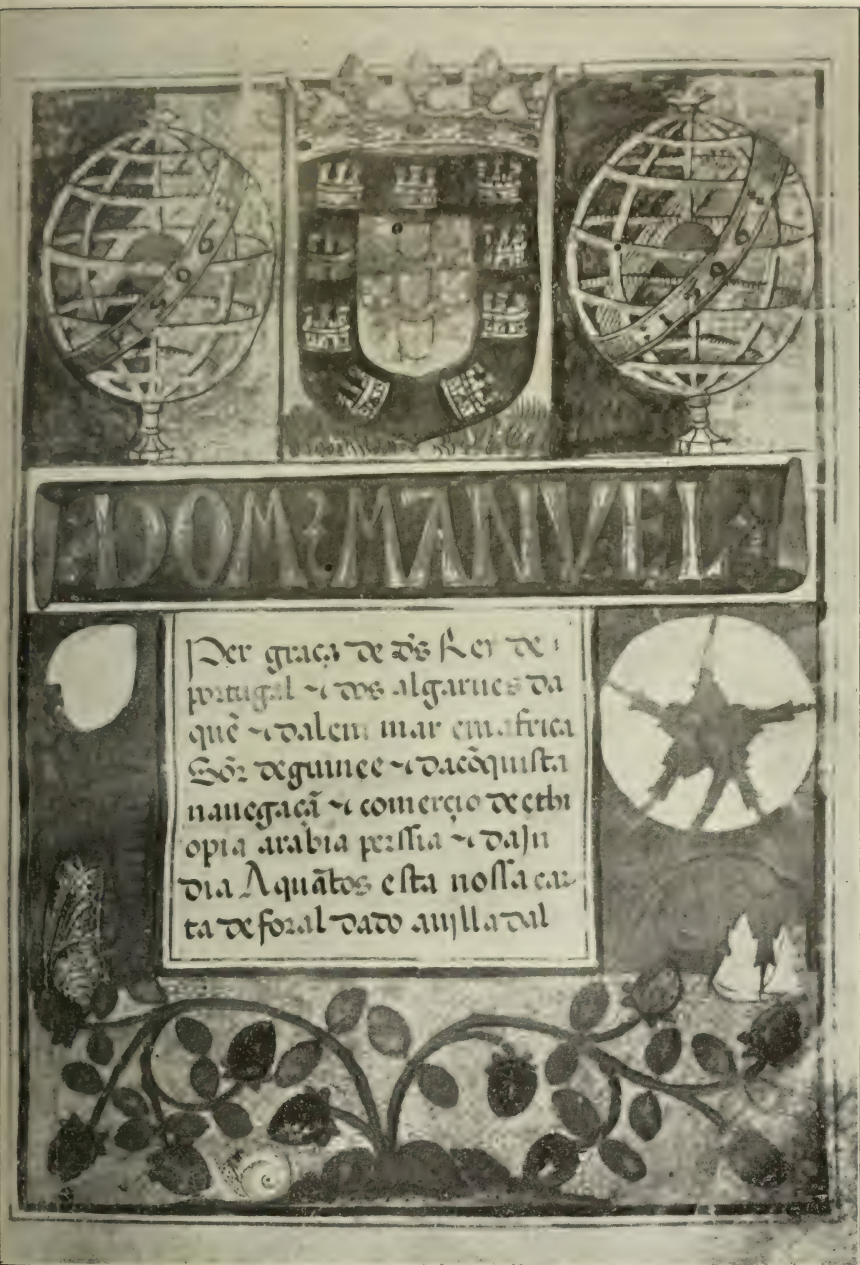 DOM: MANVEL
Per graça de d's Rey de
portugal ⁊ dos algarues da
quẽ ⁊ dalem mar em africa
Sõr de guinee ⁊ da cõquista
nauegaçã ⁊ comerçio de ethi
opia arabia perssia ⁊ da Jn
dia A quãtos esta nossa car-
ta de foral dado a villa dal